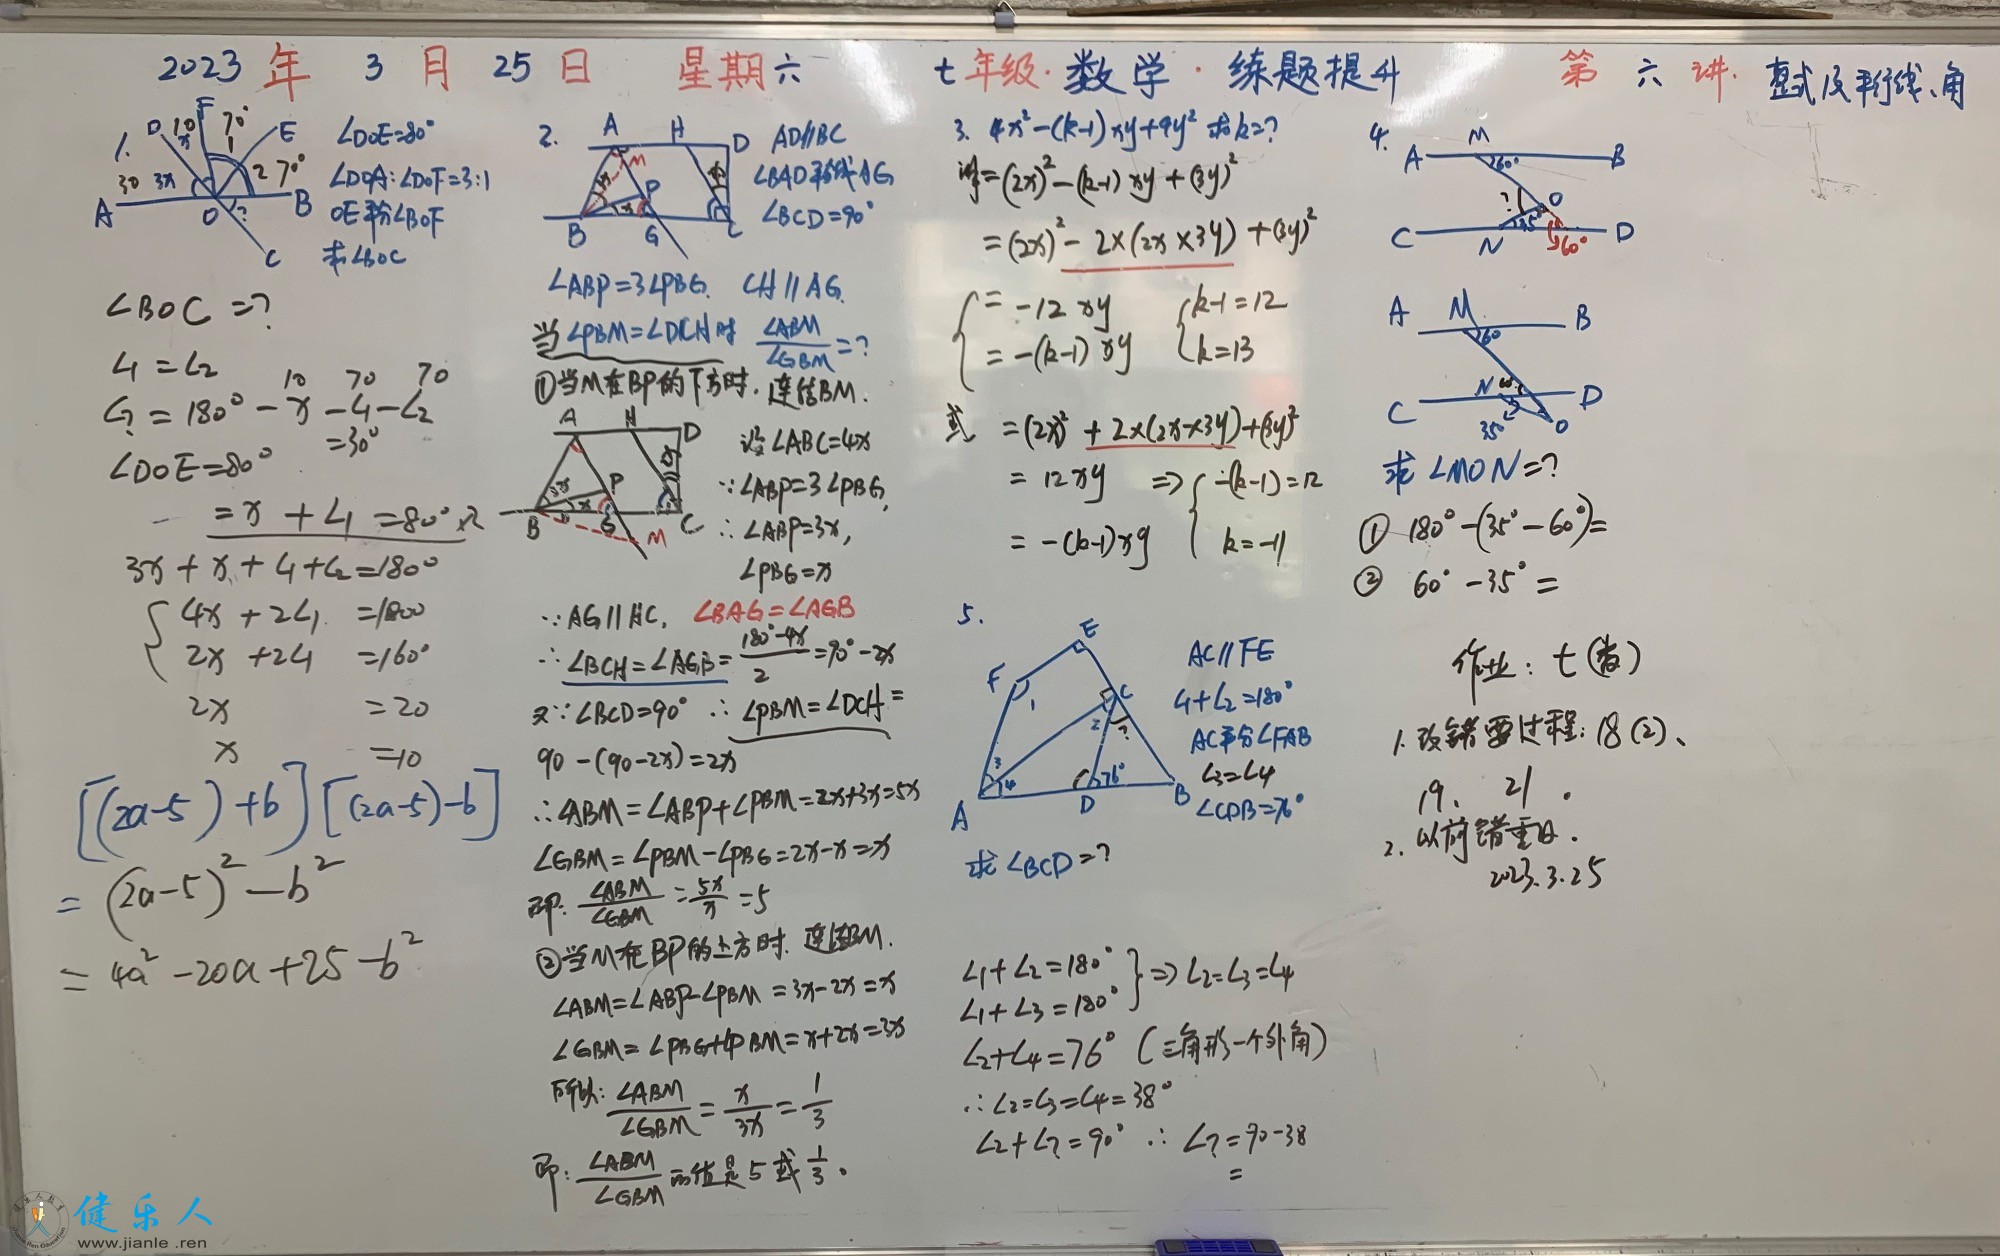 2023 年 3 月 25 日 星期六 七年级·数学·练题提升 第 六 讲. 整式及平行线、角
1.
D 10 F 70° E
x 1
30 3x 2 70°
A O ? B
C
∠DOE=80°
∠DOA:∠DOF=3:1
OE平分∠BOF
求∠BOC
∠BOC =?
∠1 = ∠2
10 70 70
∠? = 180° - x - ∠1 - ∠2
=30°
∠DOE=80°
= x + ∠1 =80° ×2
3x + x + ∠1 + ∠2 =180°
4x + 2∠1 =180°
2x + 2∠1 =160°
2x =20
x =10
[(2a-5)+b][(2a-5)-b]
= (2a-5)² - b²
= 4a² -20a +25 -b²
2.
A H D
M
P
x
B G C
AD∥BC
∠BAD平分线AG
∠BCD=90°
∠ABP=3∠PBG. CH∥AG.
当∠PBM=∠DCH时 ∠ABM/∠GBM=?
①当M在BP的下方时. 连结BM.
A H D
3x P
x
B G C
M
设∠ABC=4x
∵∠ABP=3∠PBG,
∴∠ABP=3x,
∠PBG=x
∵AG∥HC, ∠BAG=∠AGB
∴∠BCH=∠AGB=(180°-4x)/2=90°-2x
又∵∠BCD=90° ∴∠PBM=∠DCH=
90-(90-2x)=2x
∴∠ABM=∠ABP+∠PBM=2x+3x=5x
∠GBM=∠PBM-∠PBG=2x-x=x
即: ∠ABM/∠GBM=5x/x=5
②当M在BP的上方时. 连结BM.
∠ABM=∠ABP-∠PBM=3x-2x=x
∠GBM=∠PBG+∠PBM=x+2x=3x
所以: ∠ABM/∠GBM=x/3x=1/3
即: ∠ABM/∠GBM的值是5或1/3.
3. 4x²-(k-1)xy+9y² 求k=?
=(2x)²-(k-1)xy+(3y)²
=(2x)²-2×(2x×3y)+(3y)²
= -12xy
= -(k-1)xy
k-1=12
k=13
或 =(2x)²+2×(2x×3y)+(3y)²
= 12xy ⇒ -(k-1)=12
= -(k-1)xy k=-11
4.
A M B
60°
? O
C N 35° 60° D
A M B
60
C N D
35° O
求∠MON=?
① 180°-(35°-60°)=
② 60°-35°=
5.
E
F 1
C
2 ?
3
4 76°
A D B
AC∥FE
∠1+∠2=180°
AC平分∠FAB
∠3=∠4
∠CDB=76°
求∠BCD=?
∠1+∠2=180°
∠1+∠3=180° ⇒∠2=∠3=∠4
∠2+∠4=76° (三角形一个外角)
∴∠2=∠3=∠4=38°
∠2+∠?=90° ∴∠?=90-38
=
作业: 七(春)
1. 改错要过程: 18(2)、
19、 21.
2. 以前错重做.
2023.3.25
健乐人
www.jianle.ren